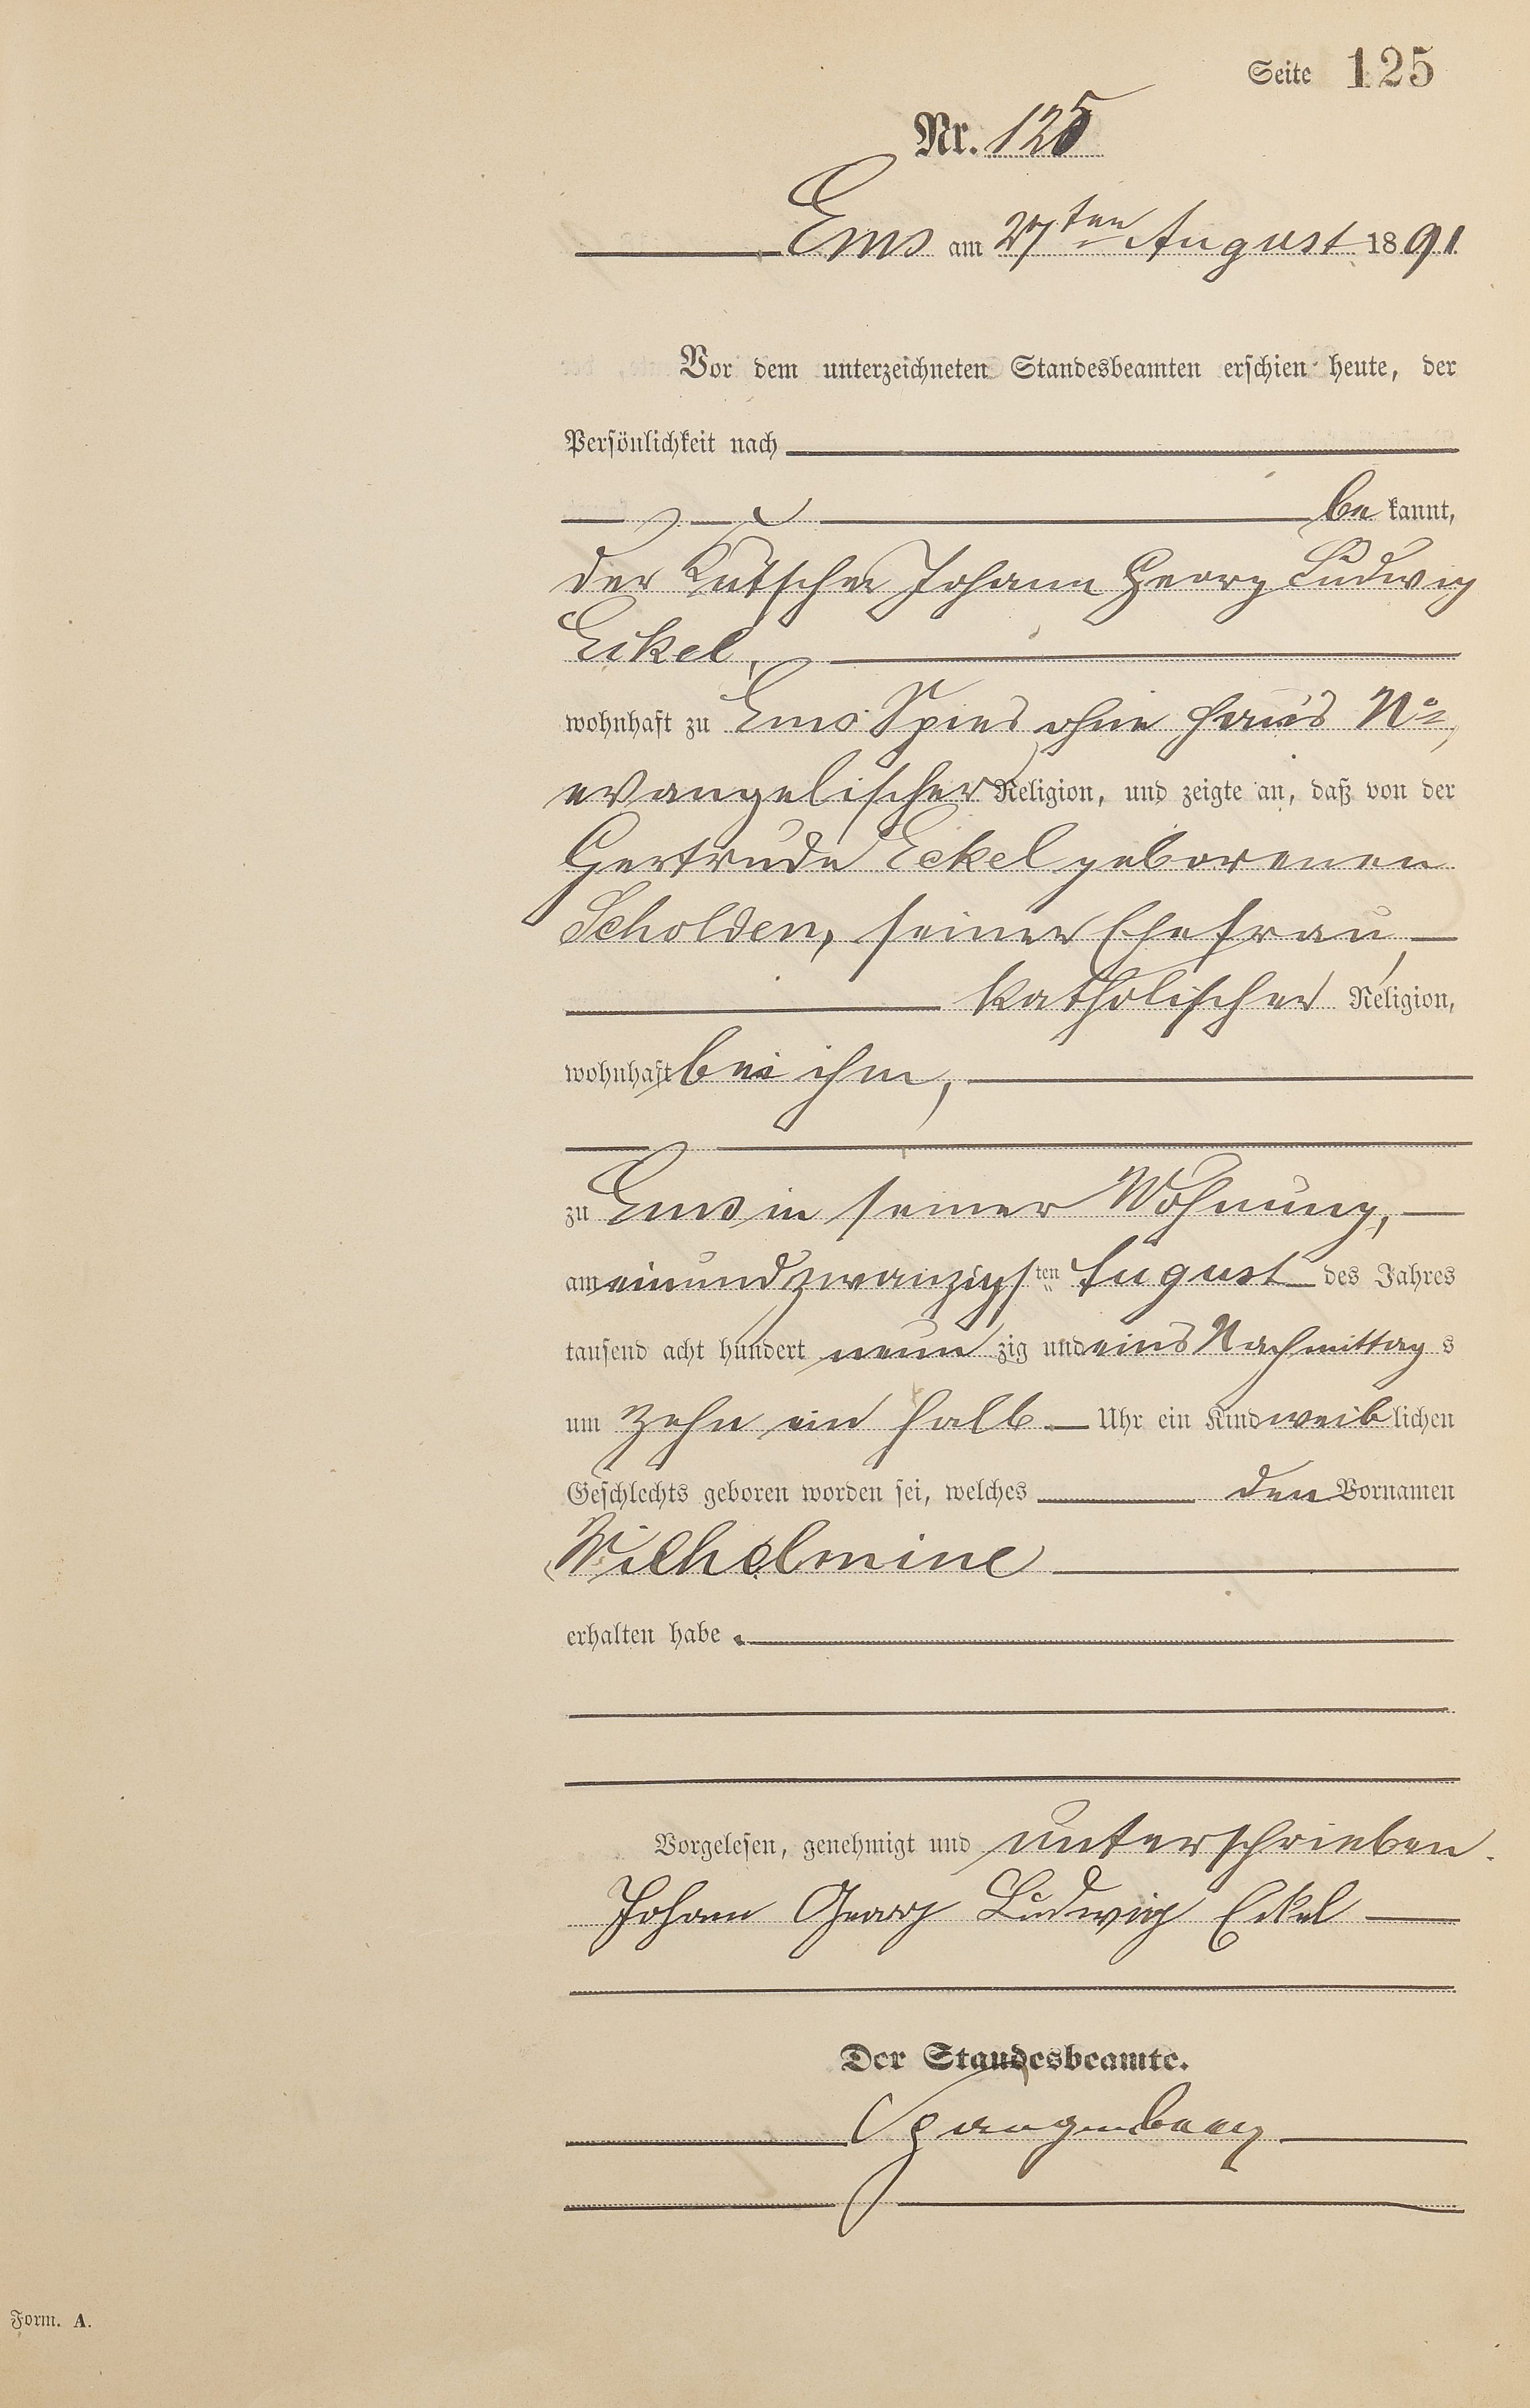 Seite 125
Nr. 125
Ems am 27ten August 1891
Vor dem unterzeichneten Standesbeamten erschien heute, der
Persönlichkeit nach
bekannt,
der Kutscher Johann Georg Ludwig
Eckel,
wohnhaft zu Ems Spies ohne Haus No,
evangelischer Religion, und zeigte an, daß von der
Gertrude Eckel geborenen
Scholden, seiner Ehefrau,
katholischer Religion,
wohnhaft bei ihm,
zu Ems in seiner Wohnung,
am einundzwanzigsten August des Jahres
tausend acht hundert neunzig und eins Nachmittags
um zehn ein halb Uhr ein Kind weiblichen
Geschlechts geboren worden sei, welches den Vornamen
Wilhelmine
erhalten habe.
Vorgelesen, genehmigt und unterschrieben.
Johann Georg Ludwig Eckel
Der Standesbeamte.
Spangenberg
Form. A.